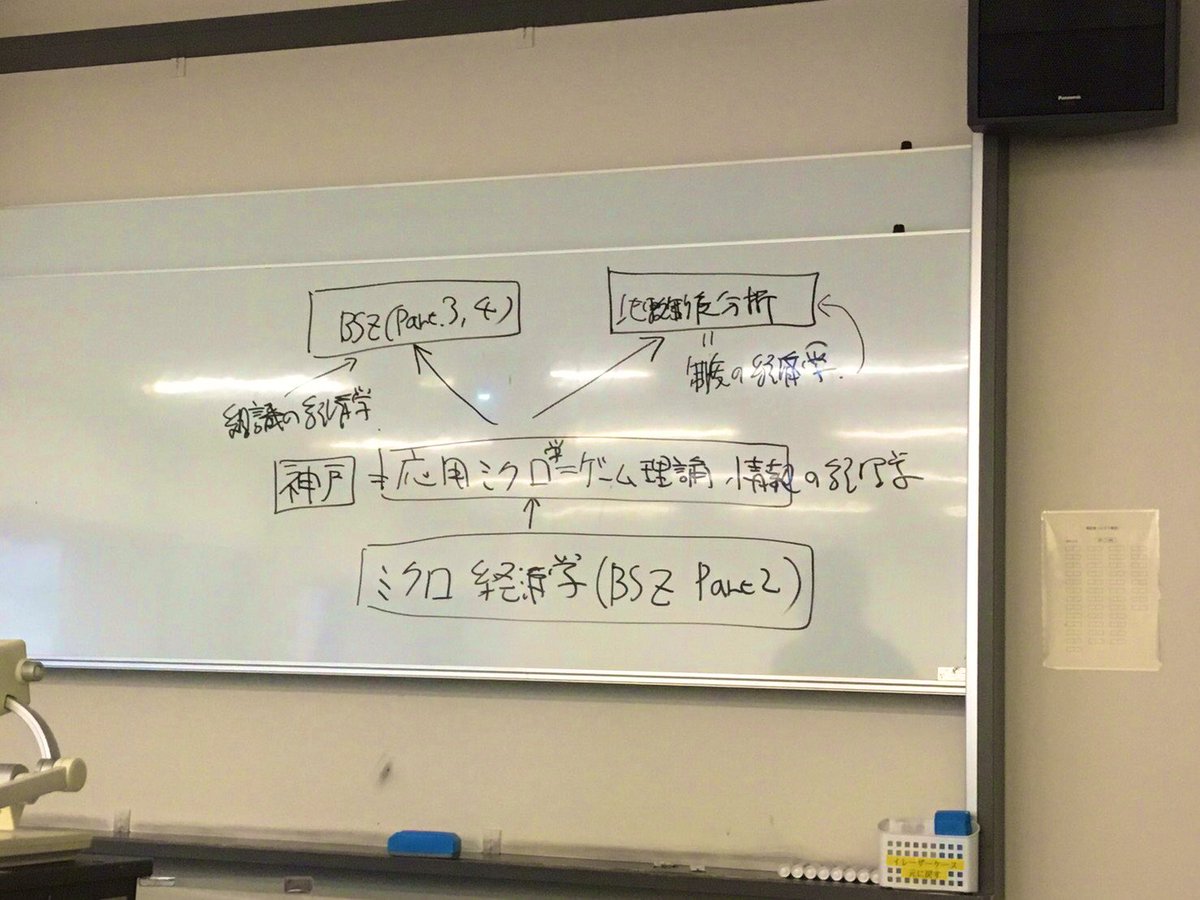 Panasonic
BSZ(Part.3,4)
比較制度分析
=
制度の経済学.
組織の経済学
神戸
応用ミクロ学=ゲーム理論 情報の経済学
ミクロ経済学(BSZ Part2)
イレーザーケース
元に戻す